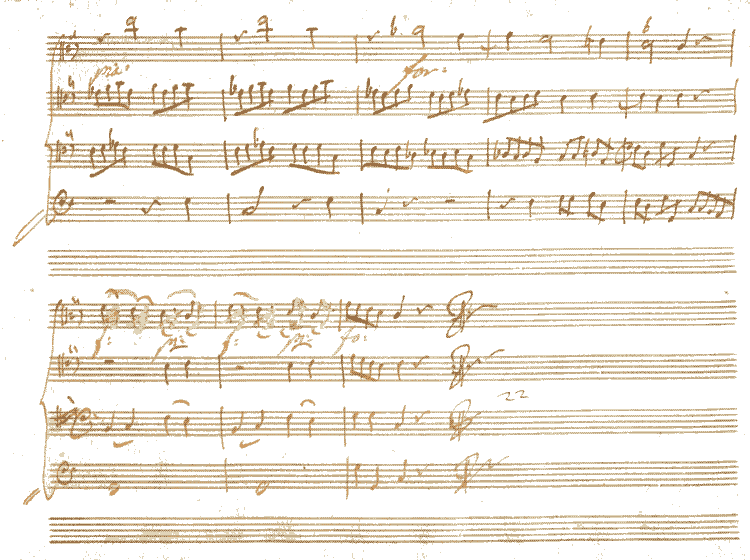 pia: for:
f: pia: f: pia: fo:
22